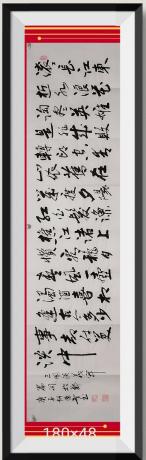 滚滚长江東
逝水浪花
淘尽英雄
是非成敗
轉头空青
山依舊在
几度夕陽
红白髮漁
樵江渚上
惯看秋月
春風一壶
濁酒喜相
逢古今多少
事都付笑
谈中
180x48